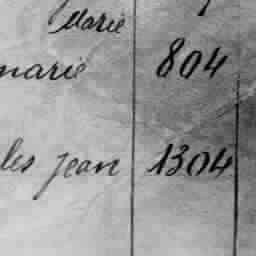 Marie
marie 804
les jean 1304